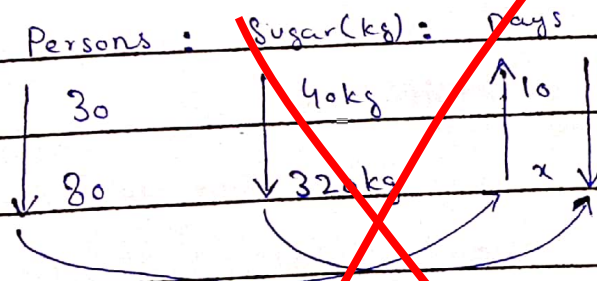 Persons : Sugar(kg) : Days
30 40kg 10
80 320kg x